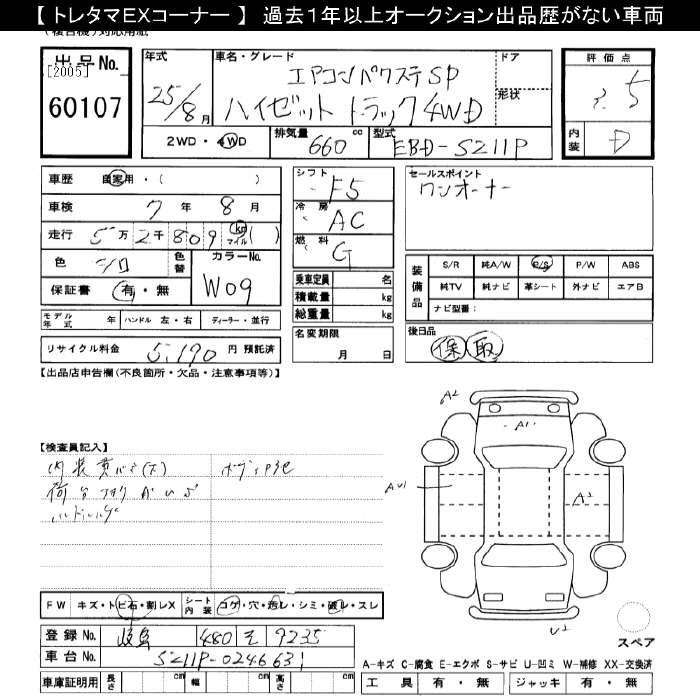 【トレタマEXコーナー】 過去1年以上オークション出品歴がない車両
出品No.
[2005]
60107
年式
25/8月
車名・グレード
エアコンパワステSP
ハイゼット トラック4WD
ドア
形状
2WD・4WD
排気量 660 cc
型式 EBD-S211P
評価点
3.5
内装 D
車歴 自家用・( )
車検 7年 8月
走行 5万2千809 km マイル ( )
色 シロ
色替
カラーNo. W09
保証書 有・無
モデル年式 年 ハンドル 左・右 ディーラー・並行
リサイクル料金 5,190 円 預託済
シフト F5
冷房 AC
燃料 G
乗車定員 名
積載量 kg
総重量 kg
名変期限
月 日
セールスポイント
ワンオーナー
装備品
S/R 純A/W P/S P/W ABS
純TV 純ナビ 革シート 外ナビ エアB
ナビ型番:
後日品
保 取
【出品店申告欄(不良箇所・欠品・注意事項等)】
【検査員記入】
ハンドルハゲ
A2
A1
A2
U2
スペア
FW キズ・トビ石・割レX
シート内装 コゲ・穴・汚レ・シミ・破レ・スレ
登録No. 岐阜 480 そ 9235
車台No. S211P-0246631
車庫証明用 長さ cm 幅 cm 高さ cm
A-キズ C-腐食 E-エクボ S-サビ U-凹ミ W-補修 XX-交換済
工具 有・無 ジャッキ 有・無